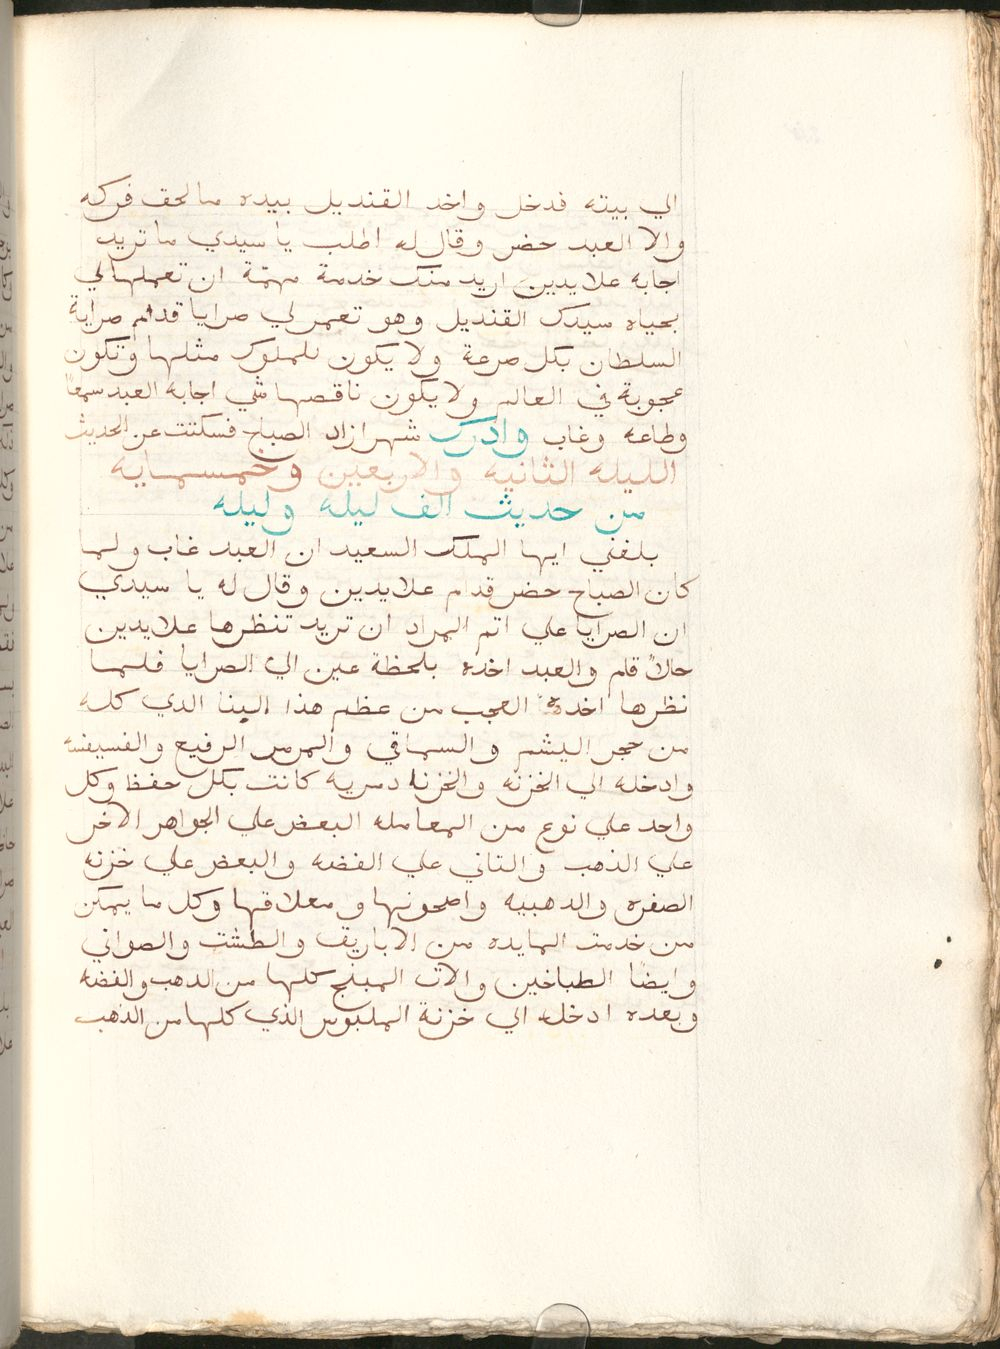 الي بيته فدخل واخد القنديل بيده مالحق فركه
والا العبد حضر وقال له اطلب يا سيدي ما تريد
اجابه علايدين اريد منك خدمة مهمّة ان تعملها لي
بحياه سيدك القنديل وهو تعمر لي صرايا قدام صراية
السلطان بكل صرعة ولا يكون للملوك مثلها وتكون
عجوبة في العالم ولا يكون ناقصها شي اجابه العبد سمعًا
وطاعه وغاب وادرك شهرازاد الصباح فسكتت عن الحديث
الليله الثانيه والاربعين وخمسمايه
من حديث الف ليله وليله
بلغني ايها الملك السعيد ان العبد غاب ولما
كان الصباح حضر قدام علايدين وقال له يا سيدي
ان الصرايا علي اتم المراد ان تريد تنظرها علايدين
حالاً قام والعبد اخده بلحظة عين الي الصرايا فلما
نظرها اخده العجب من عظم هذا البنا الدي كله
من حجر اليشم والسماقي والمرمر الرفيع والفسيفسه
وادخله الي الخزنه والخزنا دمريه كانت بكل حفظ وكل
واحد علي نوع من المعامله البعض علي الجواهر الاخر
علي الذهب والتاني علي الفضه والبعض علي خزنه
الصفره والدهبيه واصحونها ومعلاقها وكل ما يمكن
من خدمت المايده من الاباريق والطشت والصواني
وايضًا الطباخين والات المبلج كلها من الدهب والفضه
وبعده ادخله الي خزنة الملبوس الذي كلها من الذهب